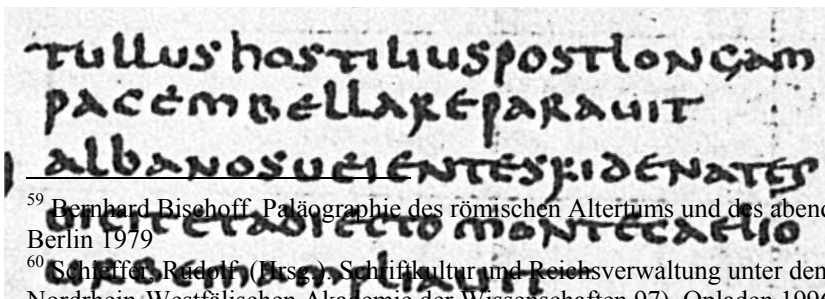 tullushostiliuspostlongam
pacembellareparauit
albanosueientesfidenates
59 Bernhard Bischoff, Paläographie des römischen Altertums und des abend
uicitetadiectomontecaelio
Berlin 1979
60 Schieffer, Rudolf (Hrsg.): Schriftkultur und Reichsverwaltung unter den
urbemampliauit
Nordrhein-Westfälischen Akademie der Wissenschaften 97), Opladen 1996